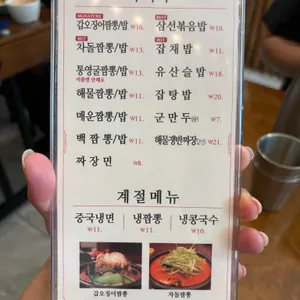 SIGNATURE
갑오징어짬뽕/밥 ₩16.
BEST
삼선볶음밥 ₩10.
HIT
차돌짬뽕/밥 ₩13.
HIT
잡채밥 ₩11.
통영굴짬뽕/밥 ₩13.
유산슬밥 ₩18.
해물짬뽕/밥 ₩12.
잡탕밥 ₩20.
매운짬뽕/밥 ₩11.
군만두 ₩7.
백짬뽕/밥 ₩11.
해물쟁반짜장 ₩21.
짜장면 ₩8.
계절메뉴
중국냉면 ₩11.
냉짬뽕 ₩11.
냉콩국수 ₩10.
갑오징어짬뽕
차돌짬뽕